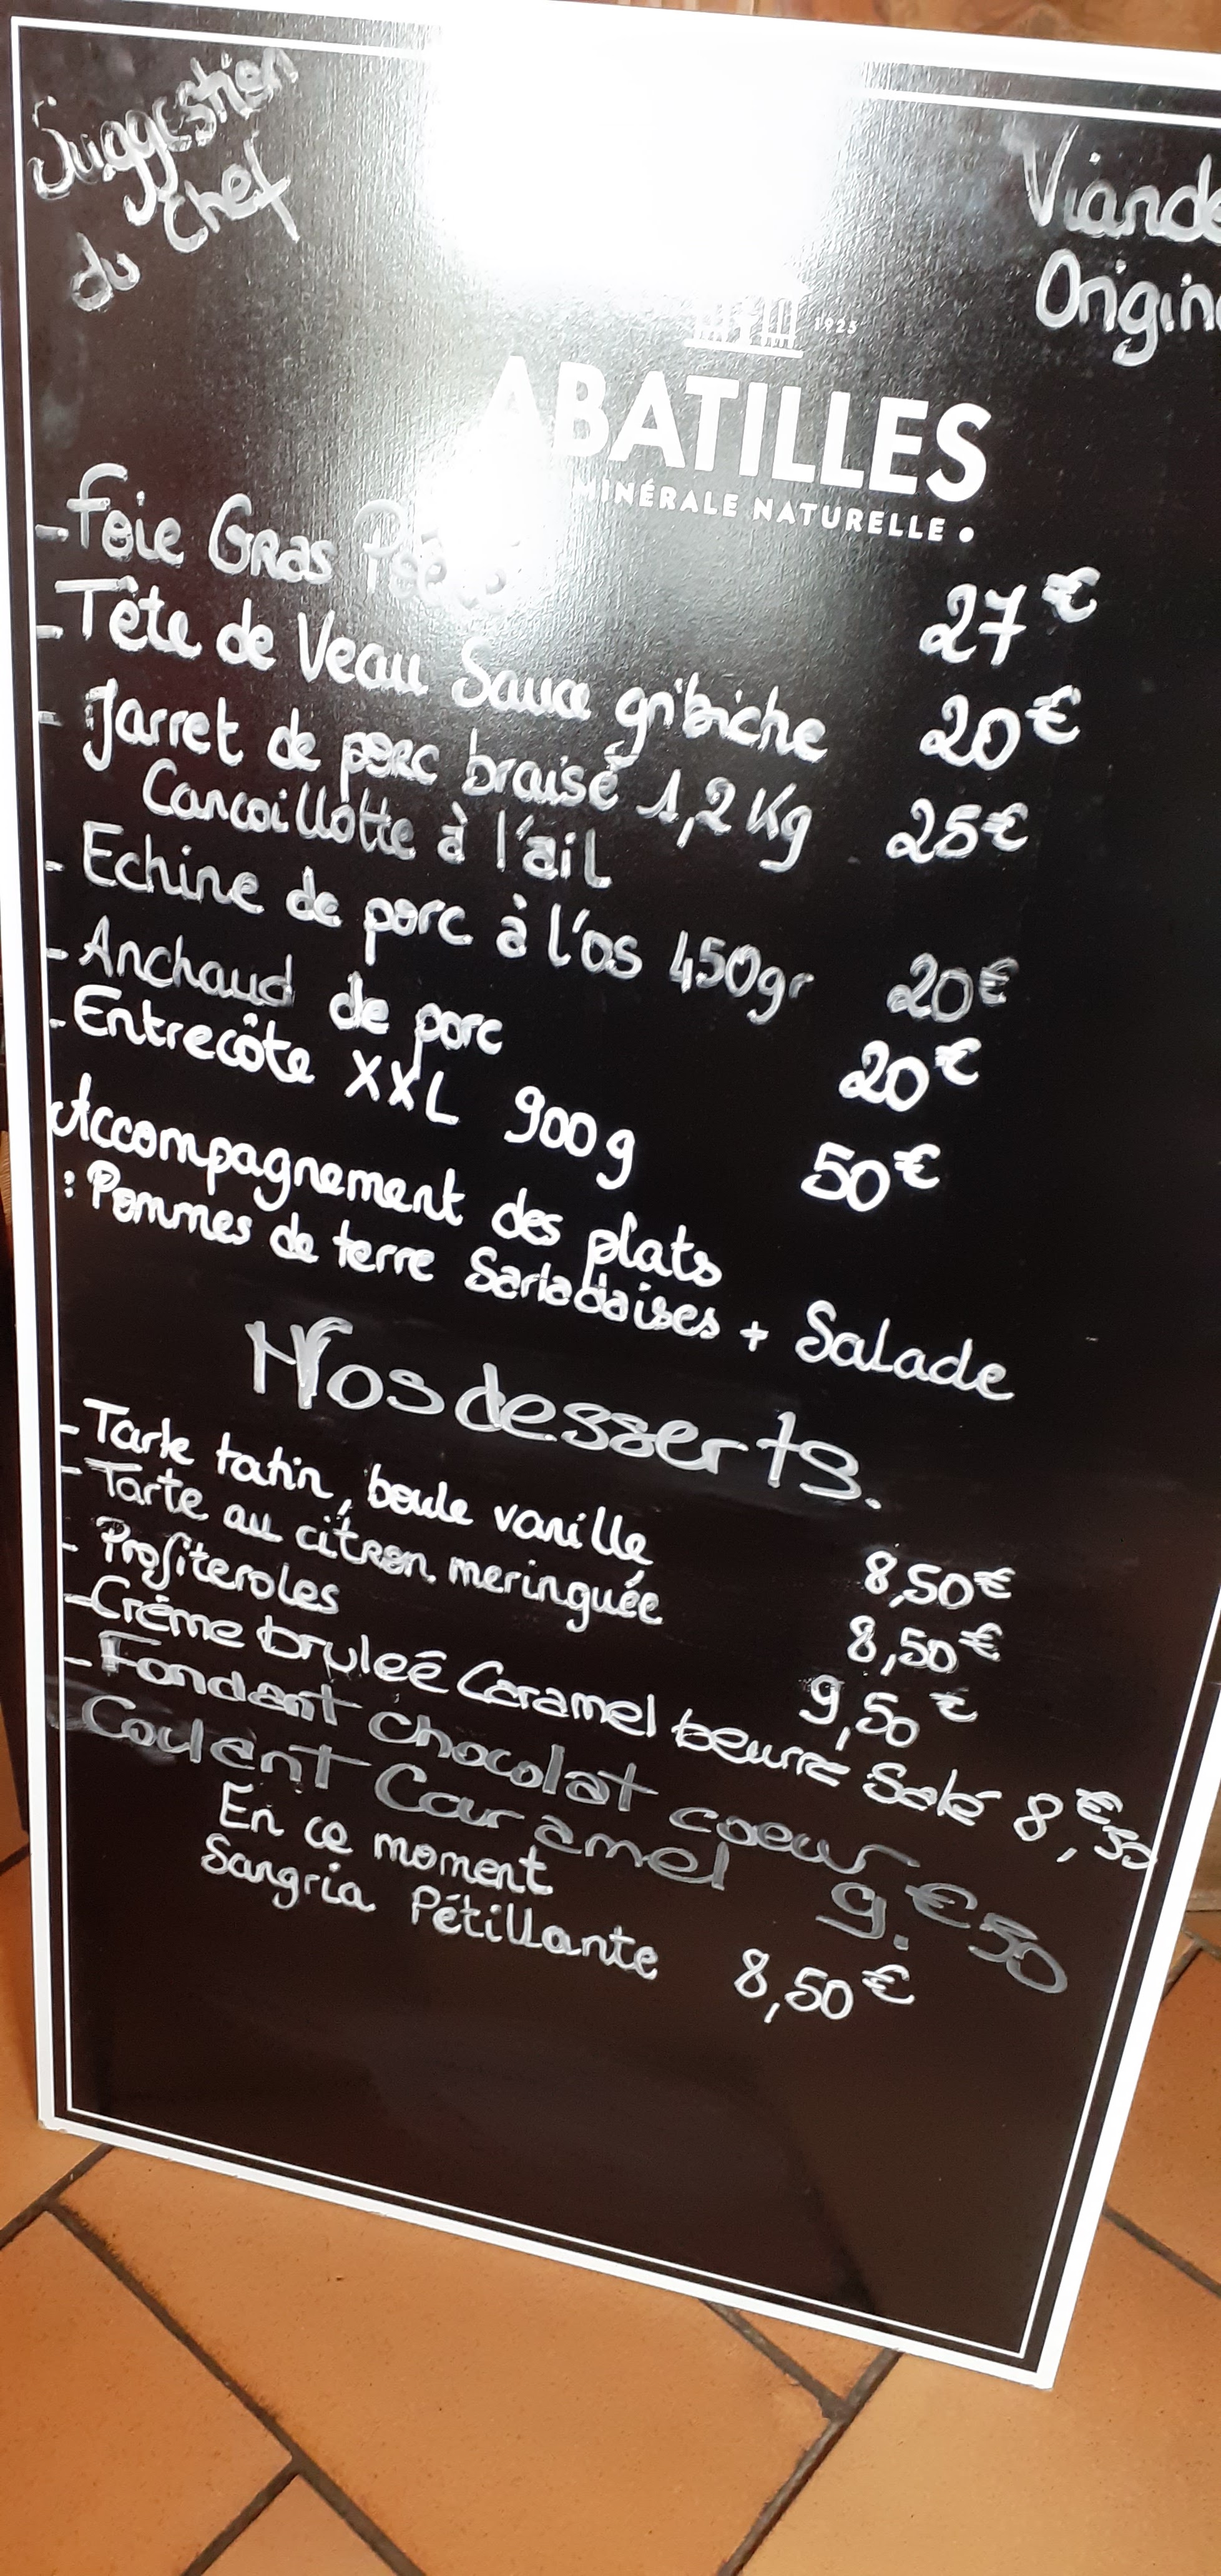 Suggestion
du chef
Viande
Origin
1925
ABATILLES
MINÉRALE NATURELLE •
- Foie Gras Poêlé 27€
- Tête de Veau Sauce gribiche 20€
- Jarret de porc braisé 1,2Kg 25€
Cancoillotte à l'ail
- Echine de porc à l'os 450gr 20€
- Anchaud de porc 20€
- Entrecôte XXL 900g 50€
Accompagnement des plats
: Pommes de terre Sarladaises + Salade
Nos desserts.
- Tarte tatin, boule vanille 8,50€
- Tarte au citron meringuée 8,50€
- Profiteroles 9,50€
- Crème bruleé Caramel beurre Salé 8,€50
- Fondant chocolat coeur
Coulant Caramel 9.€50
En ce moment
Sangria Pétillante 8,50€